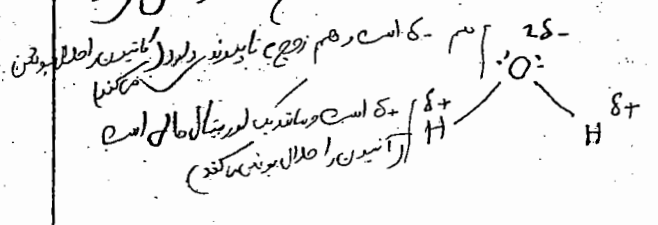 2δ-
هم δ- است و هم زوج e ناپیوندی دارد (کاتیون را حلال پوشی می‌کند)
:O:
δ+ است و مانند یک اوربیتال خالی است δ+ δ+
(آنیون را حلال پوشی می‌کند) H H